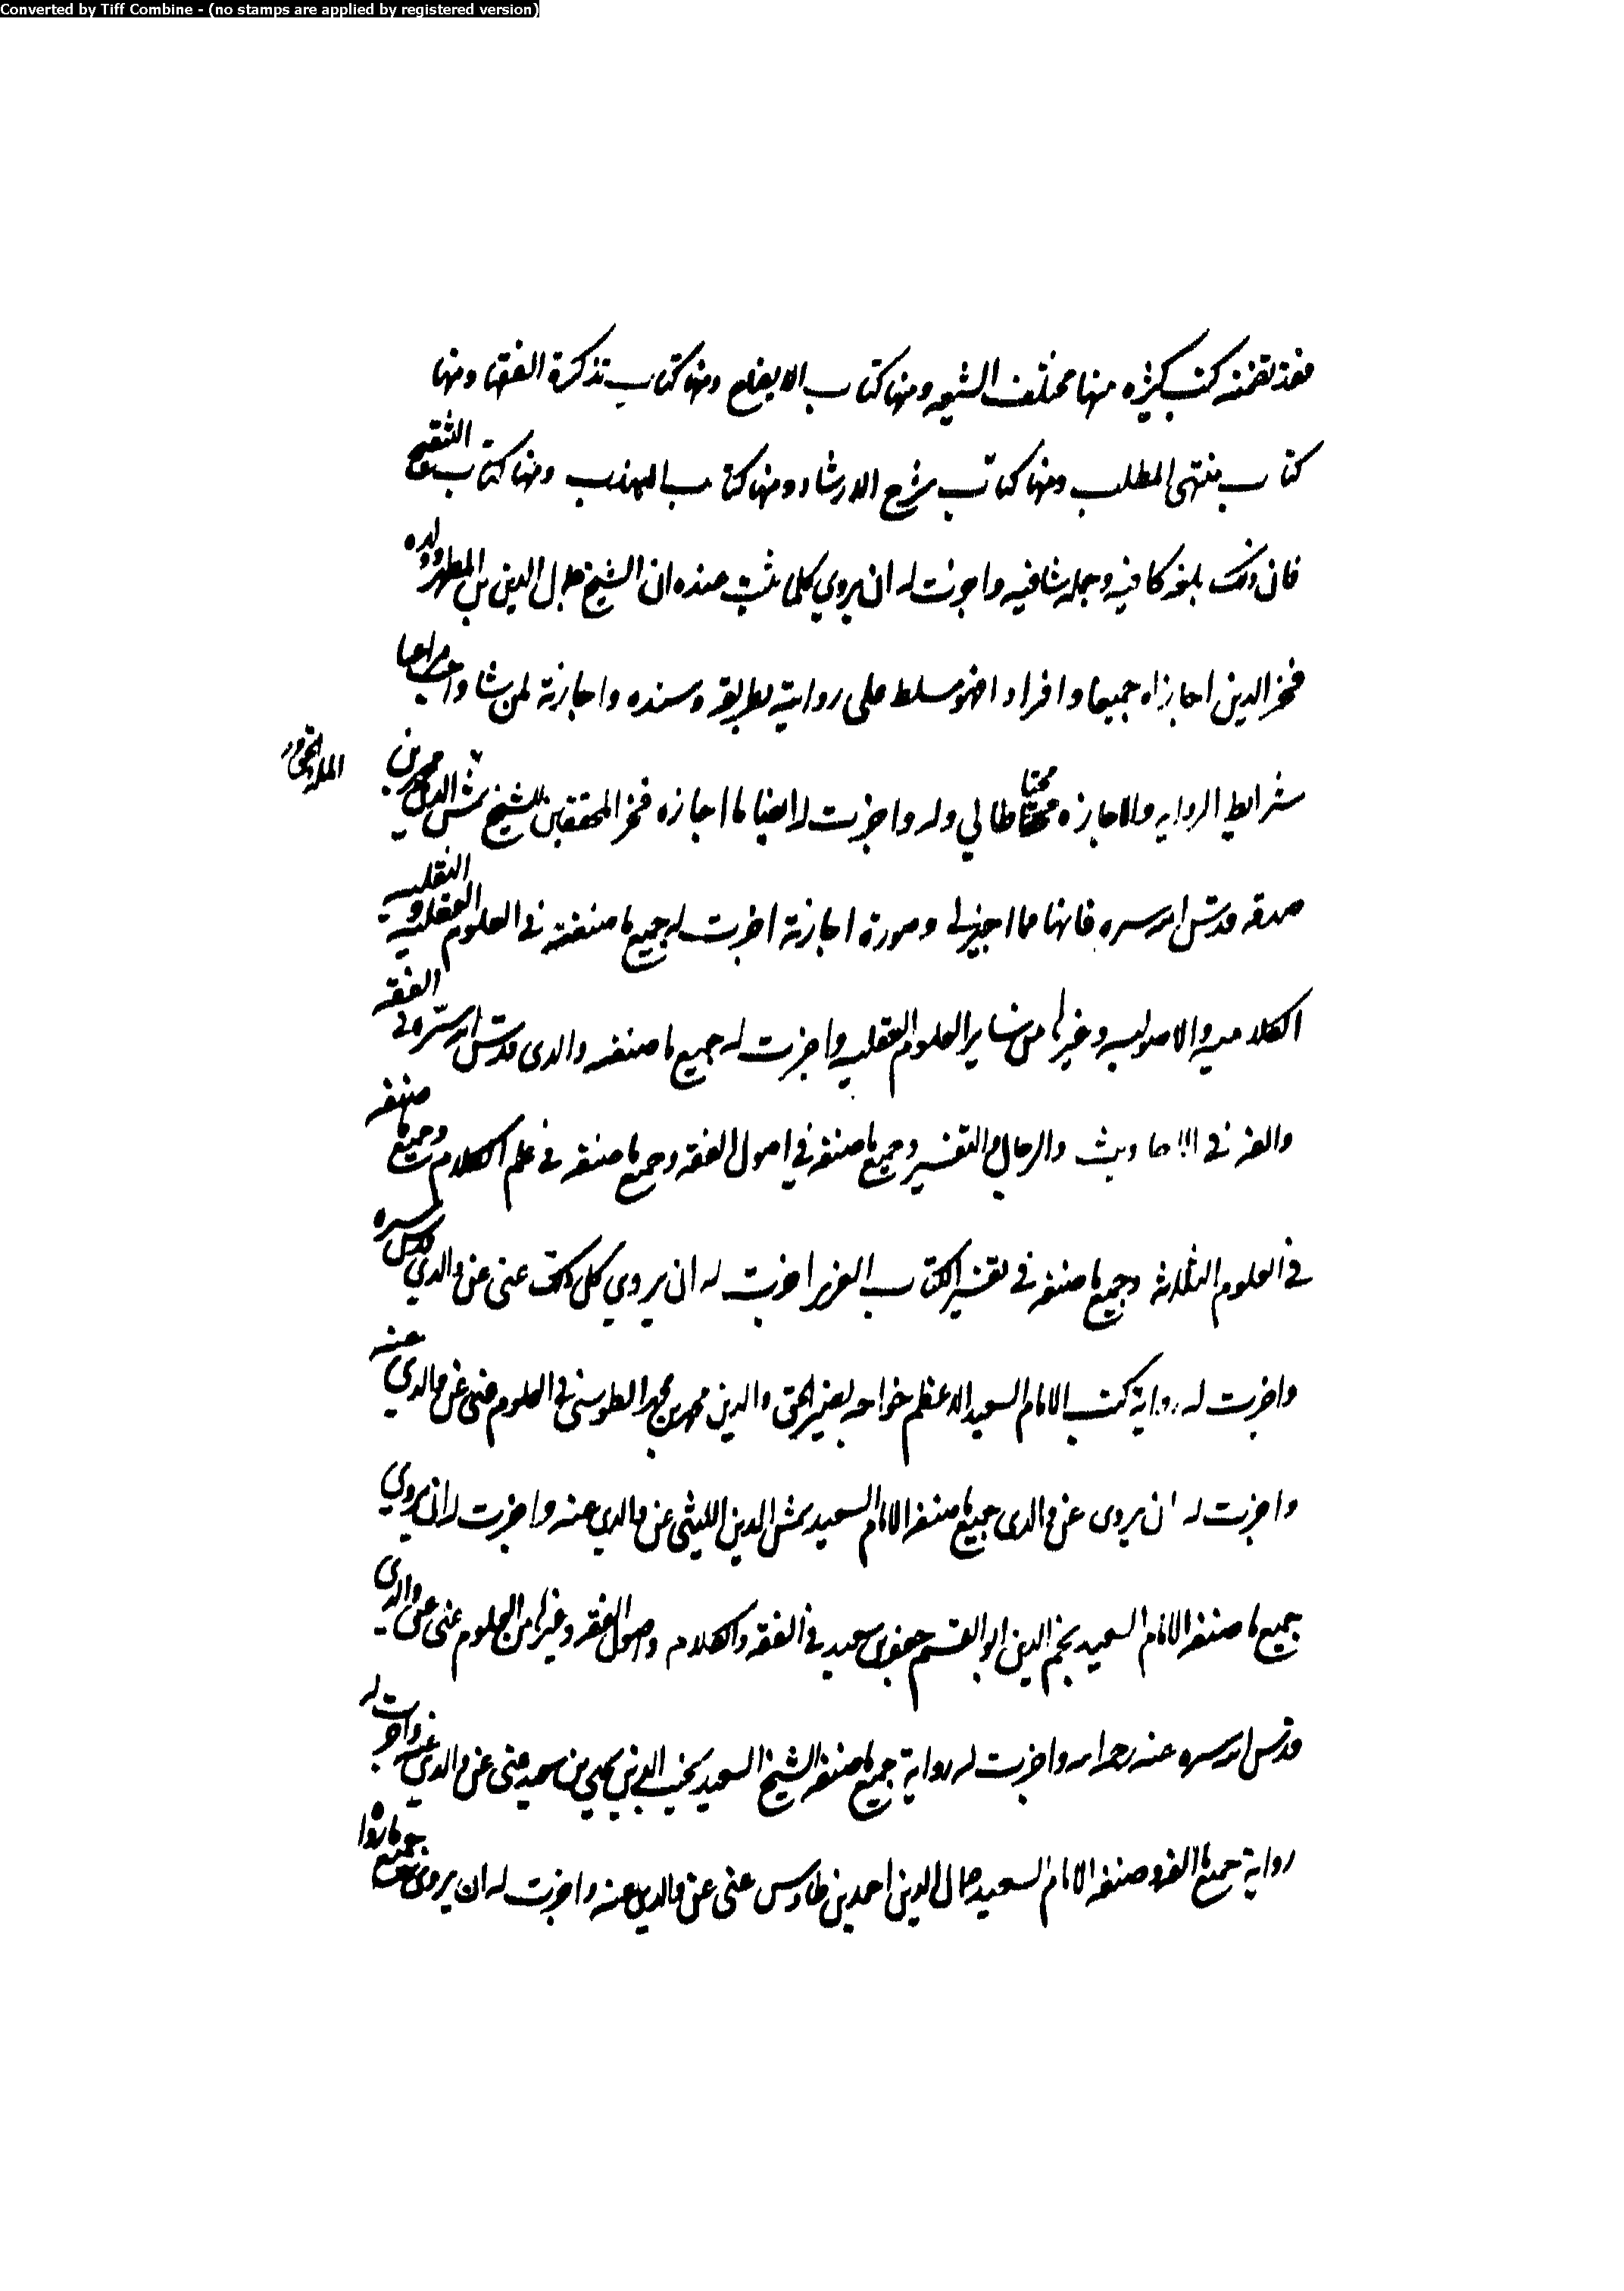 Converted by Tiff Combine - (no stamps are applied by registered version)
فقد تضمنته كتب كثيره منها مختلف الشيعه ومنها كتاب الايضاح ومنها كتاب تذكرة الفقها ومنها
كتاب منتهى المطلب ومنها كتاب شرح الارشاد ومنها كتاب المهذب ومنها كتاب التنقيح
فان ذلك بلغه كافيه وجمله شافيه واجزت له ان يروي كلما ثبت عنده ان الشيخ جمال الدين بن المطهر وولده
فخر الدين اجازاه جميعا وافرادا فهو مسلط على روايته بطريقه وسنده واجازته لمن شا واحب مراعيا
شرايط الروايه والاجازه محتاطا لي وله واجزت له ايضا ما اجازه فخر المحققين للشيخ شمس الدين محمد بن
صدقه قدس الله سره فانها مما اجيز لي وصورة اجازته اجزت له جميع ما صنفته في العلوم العقليه والنقليه
الكلاميه والاصوليه وغيرها من ساير العلوم العقليه واجزت له جميع ما صنفه والدى قدس الله سره في الفقه
والفه في الاحاديث والرجال والتفسير وجميع ما صنفه في اصول الفقه وجميع ما صنفه في علم الكلام وجميع ما صنفه
في العلوم الثلاثه وجميع ما صنفه في تفسير الكتاب العزيز اجزت له ان يروي كل ذلك عنى عن والدي قدس سره
واجزت له رواية كتب الامام السعيد الاعظم خواجه نصير الحق والدين محمد بن محمد الطوسي في العلوم عني عن والدي عنه
واجزت له ان يروى عن والدى جميع ما صنفه الامام السعيد شمس الدين الليثي عن والدي عنه واجزت له ان يروي
جميع ما صنفه الامام السعيد نجم الدين ابو القسم جعفر بن سعيد في الفقه والكلام واصول الفقه وغيرها من العلوم عنى عن والدي
قدس الله سره عنه رحمه الله واجزت له رواية جميع ما صنفه الشيخ السعيد نجيب الدين يحيى بن سعيد عنى عن والدي عنه واجزت له
رواية جميع ما الفه وصنفه الامام السعيد جمال الدين احمد بن طاوس عنى عن والدي عنه واجزت له ان يروى جميع ما رواه